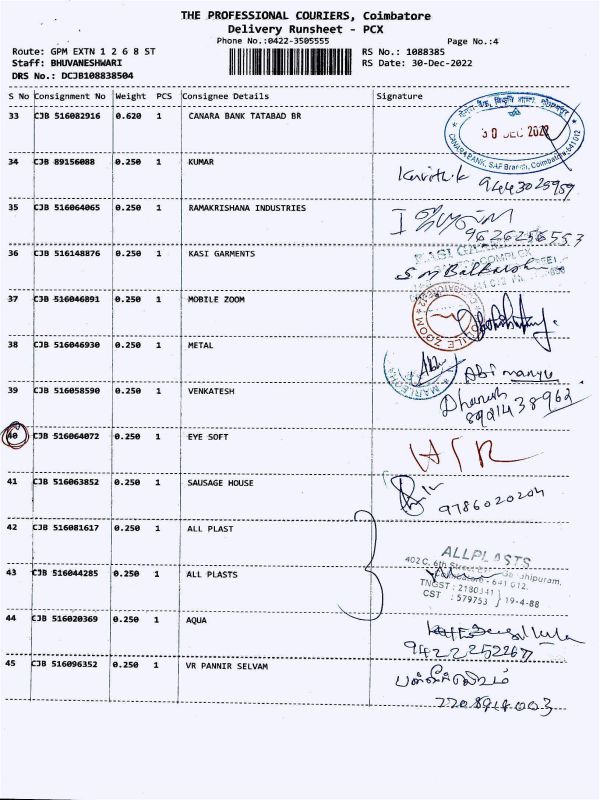 THE PROFESSIONAL COURIERS, Coimbatore
Delivery Runsheet - PCX
Phone No.:0422-3505555
Page No.:4
Route: GPM EXTN 1 2 6 8 ST
RS No.: 1088385
Staff: BHUVANESHWARI
RS Date: 30-Dec-2022
DRS No.: DCJB108838504
S No Consignment No Weight PCS Consignee Details Signature
33 CJB 516082916 0.620 1 CANARA BANK TATABAD BR
30 DEC 2022
CANARA BANK, SAF Branch, Coimbatore-641 012
34 CJB 89156088 0.250 1 KUMAR
9443025959
35 CJB 516064065 0.250 1 RAMAKRISHANA INDUSTRIES
9626256553
36 CJB 516148876 0.250 1 KASI GARMENTS
KASI
COMPLEX
37 CJB 516046891 0.250 1 MOBILE ZOOM
MOBILE ZOOM
38 CJB 516046930 0.250 1 METAL
Abi Abimanyu
39 CJB 516058590 0.250 1 VENKATESH
Dhanush
8921438962
40 CJB 516064072 0.250 1 EYE SOFT
41 CJB 516063852 0.250 1 SAUSAGE HOUSE
9786020204
42 CJB 516081617 0.250 1 ALL PLAST
ALLPLASTS
402 C, 6th Street
43 CJB 516044285 0.250 1 ALL PLASTS
Coimbatore - 641 012.
TNGST : 2180341
CST : 579753 } 19-4-88
44 CJB 516020369 0.250 1 AQUA
9422252267
45 CJB 516096352 0.250 1 VR PANNIR SELVAM
பன்னீர்செல்வம்
7708914003